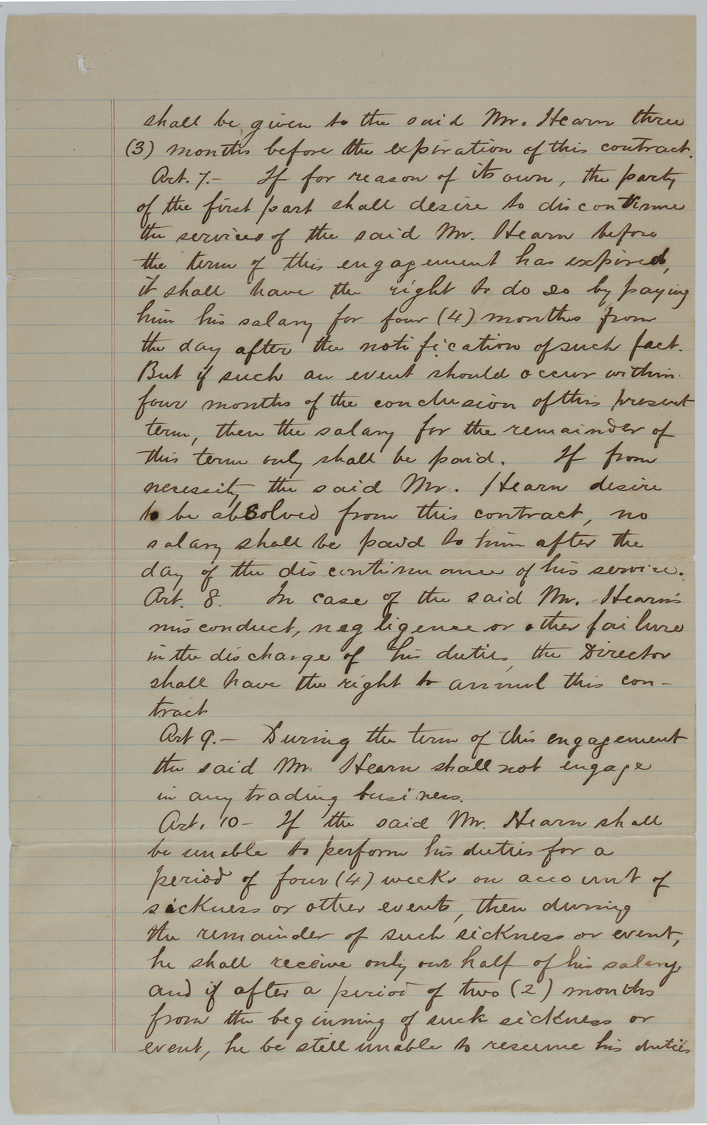 shall be given to the said Mr. Hearn three
(3) months before the expiration of this contract.
Art. 7.- If for reason of its own, the party
of the first part shall desire to discontinue
the services of the said Mr. Hearn before
the term of this engagement has expired,
it shall have the right to do so by paying
him his salary for four (4) months from
the day after the notification of such fact.
But if such an event should occur within
four months of the conclusion of this present
term, then the salary for the remainder of
this term only shall be paid. If from
necessity the said Mr. Hearn desire
to be absolved from this contract, no
salary shall be paid to him after the
day of the discontinuance of his service.
Art. 8. In case of the said Mr. Hearn's
misconduct, negligence or other failure
in the discharge of his duties, the Director
shall have the right to annul this con-
tract
Art 9.- During the term of this engagement
the said Mr Hearn shall not engage
in any trading business.
Art. 10- If the said Mr. Hearn shall
be unable to perform his duties for a
period of four (4) weeks on account of
sickness or other events, then during
the remainder of such sickness or event,
he shall receive only one half of his salary,
and if after a period of two (2) months
from the beginning of such sickness or
event, he be still unable to resume his duties